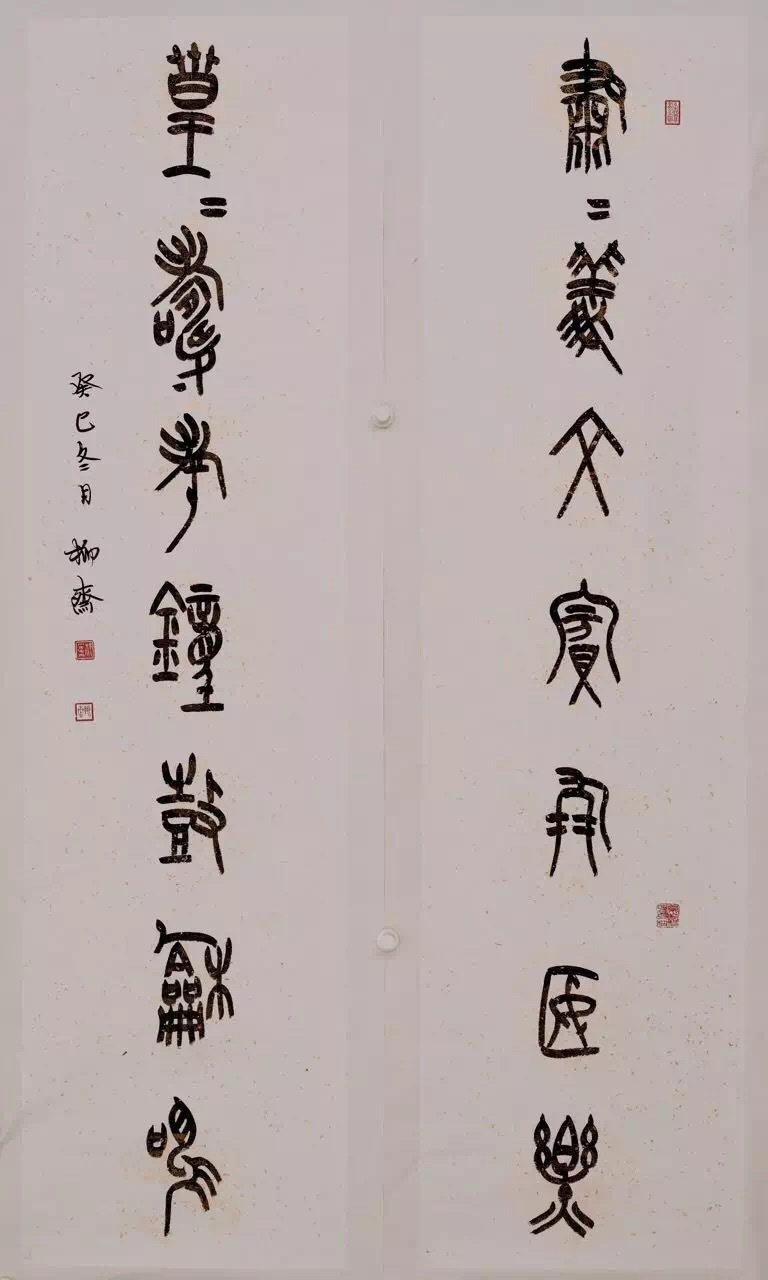 肅〻義文賓倗匽樂
皇〻壽考鐘鼓龢鳴
癸巳冬月 柳齋